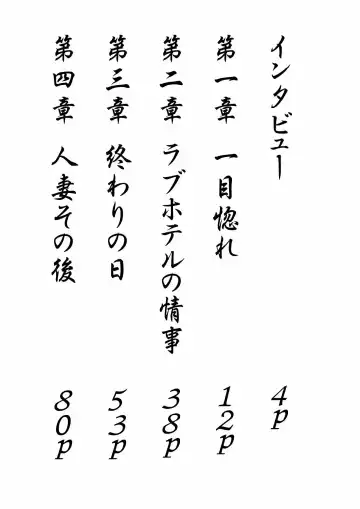 インタビュー 4p
第一章 一目惚れ 12p
第二章 ラブホテルの情事 38p
第三章 終わりの日 53p
第四章 人妻その後 80p